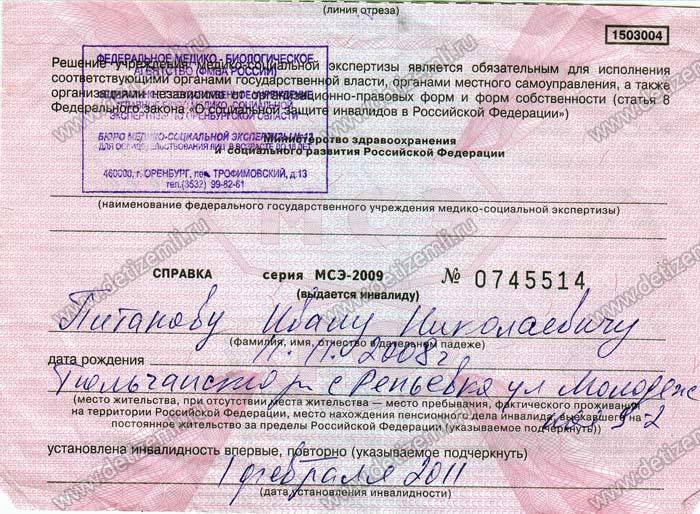 (линия отреза)
1503004
Решение учреждения медико-социальной экспертизы является обязательным для исполнения
соответствующими органами государственной власти, органами местного самоуправления, а также
организациями независимо от организационно-правовых форм и форм собственности (статья 8
Федерального закона «О социальной защите инвалидов в Российской Федерации»)
ФЕДЕРАЛЬНОЕ МЕДИКО - БИОЛОГИЧЕСКОЕ
АГЕНТСТВО (ФМБА РОССИИ)
МЕДИКО-СОЦИАЛЬНОЙ
ЭКСПЕРТИЗЫ ПО ОРЕНБУРГСКОЙ ОБЛАСТИ
БЮРО МЕДИКО-СОЦИАЛЬНОЙ ЭКСПЕРТИЗЫ №13
ДЛЯ ОСВИДЕТЕЛЬСТВОВАНИЯ ЛИЦ В ВОЗРАСТЕ ДО 18 ЛЕТ
460000, г. ОРЕНБУРГ, пер. ТРОФИМОВСКИЙ, д.13
тел.(3532) 99-82-61
Министерство здравоохранения
и социального развития Российской Федерации
(наименование федерального государственного учреждения медико-социальной экспертизы)
МСЭ
СПРАВКА серия МСЭ-2009 № 0745514
(выдается инвалиду)
Питанову Ивану Николаевичу
(фамилия, имя, отчество в дательном падеже)
дата рождения 11.11.2008г
Тюльганский р-н с Репьевка ул Молодеж
(место жительства, при отсутствии места жительства — место пребывания, фактического проживания
на территории Российской Федерации, место нахождения пенсионного дела инвалида, выехавшего на
постоянное жительство за пределы Российской Федерации (указываемое подчеркнуть))
ная 9-2
установлена инвалидность впервые, повторно (указываемое подчеркнуть)
1 февраля 2011
(дата установления инвалидности)
www.detizemli.ru